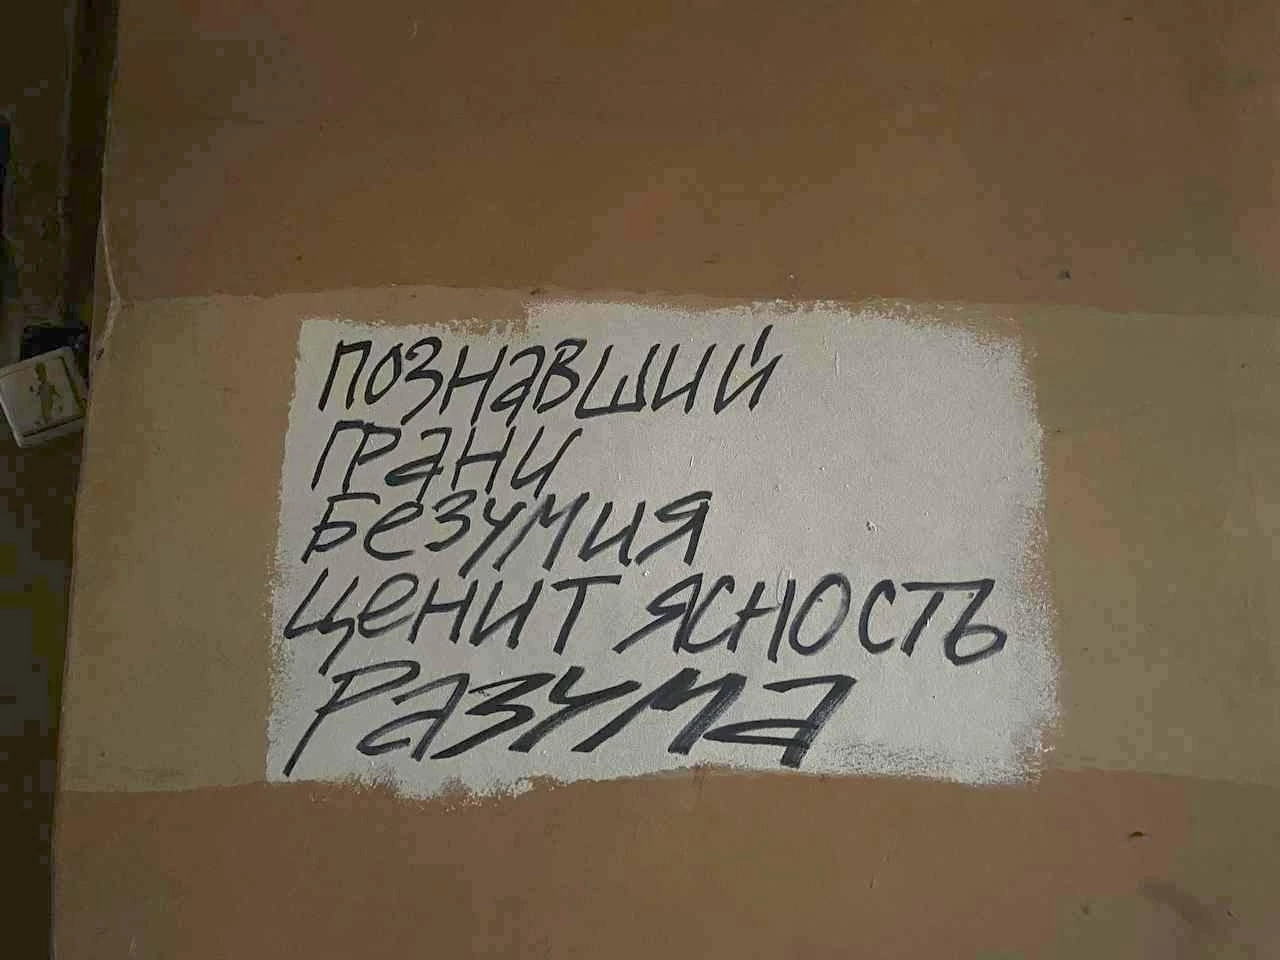 познавший
грани
безумия
ценит ясность
разума